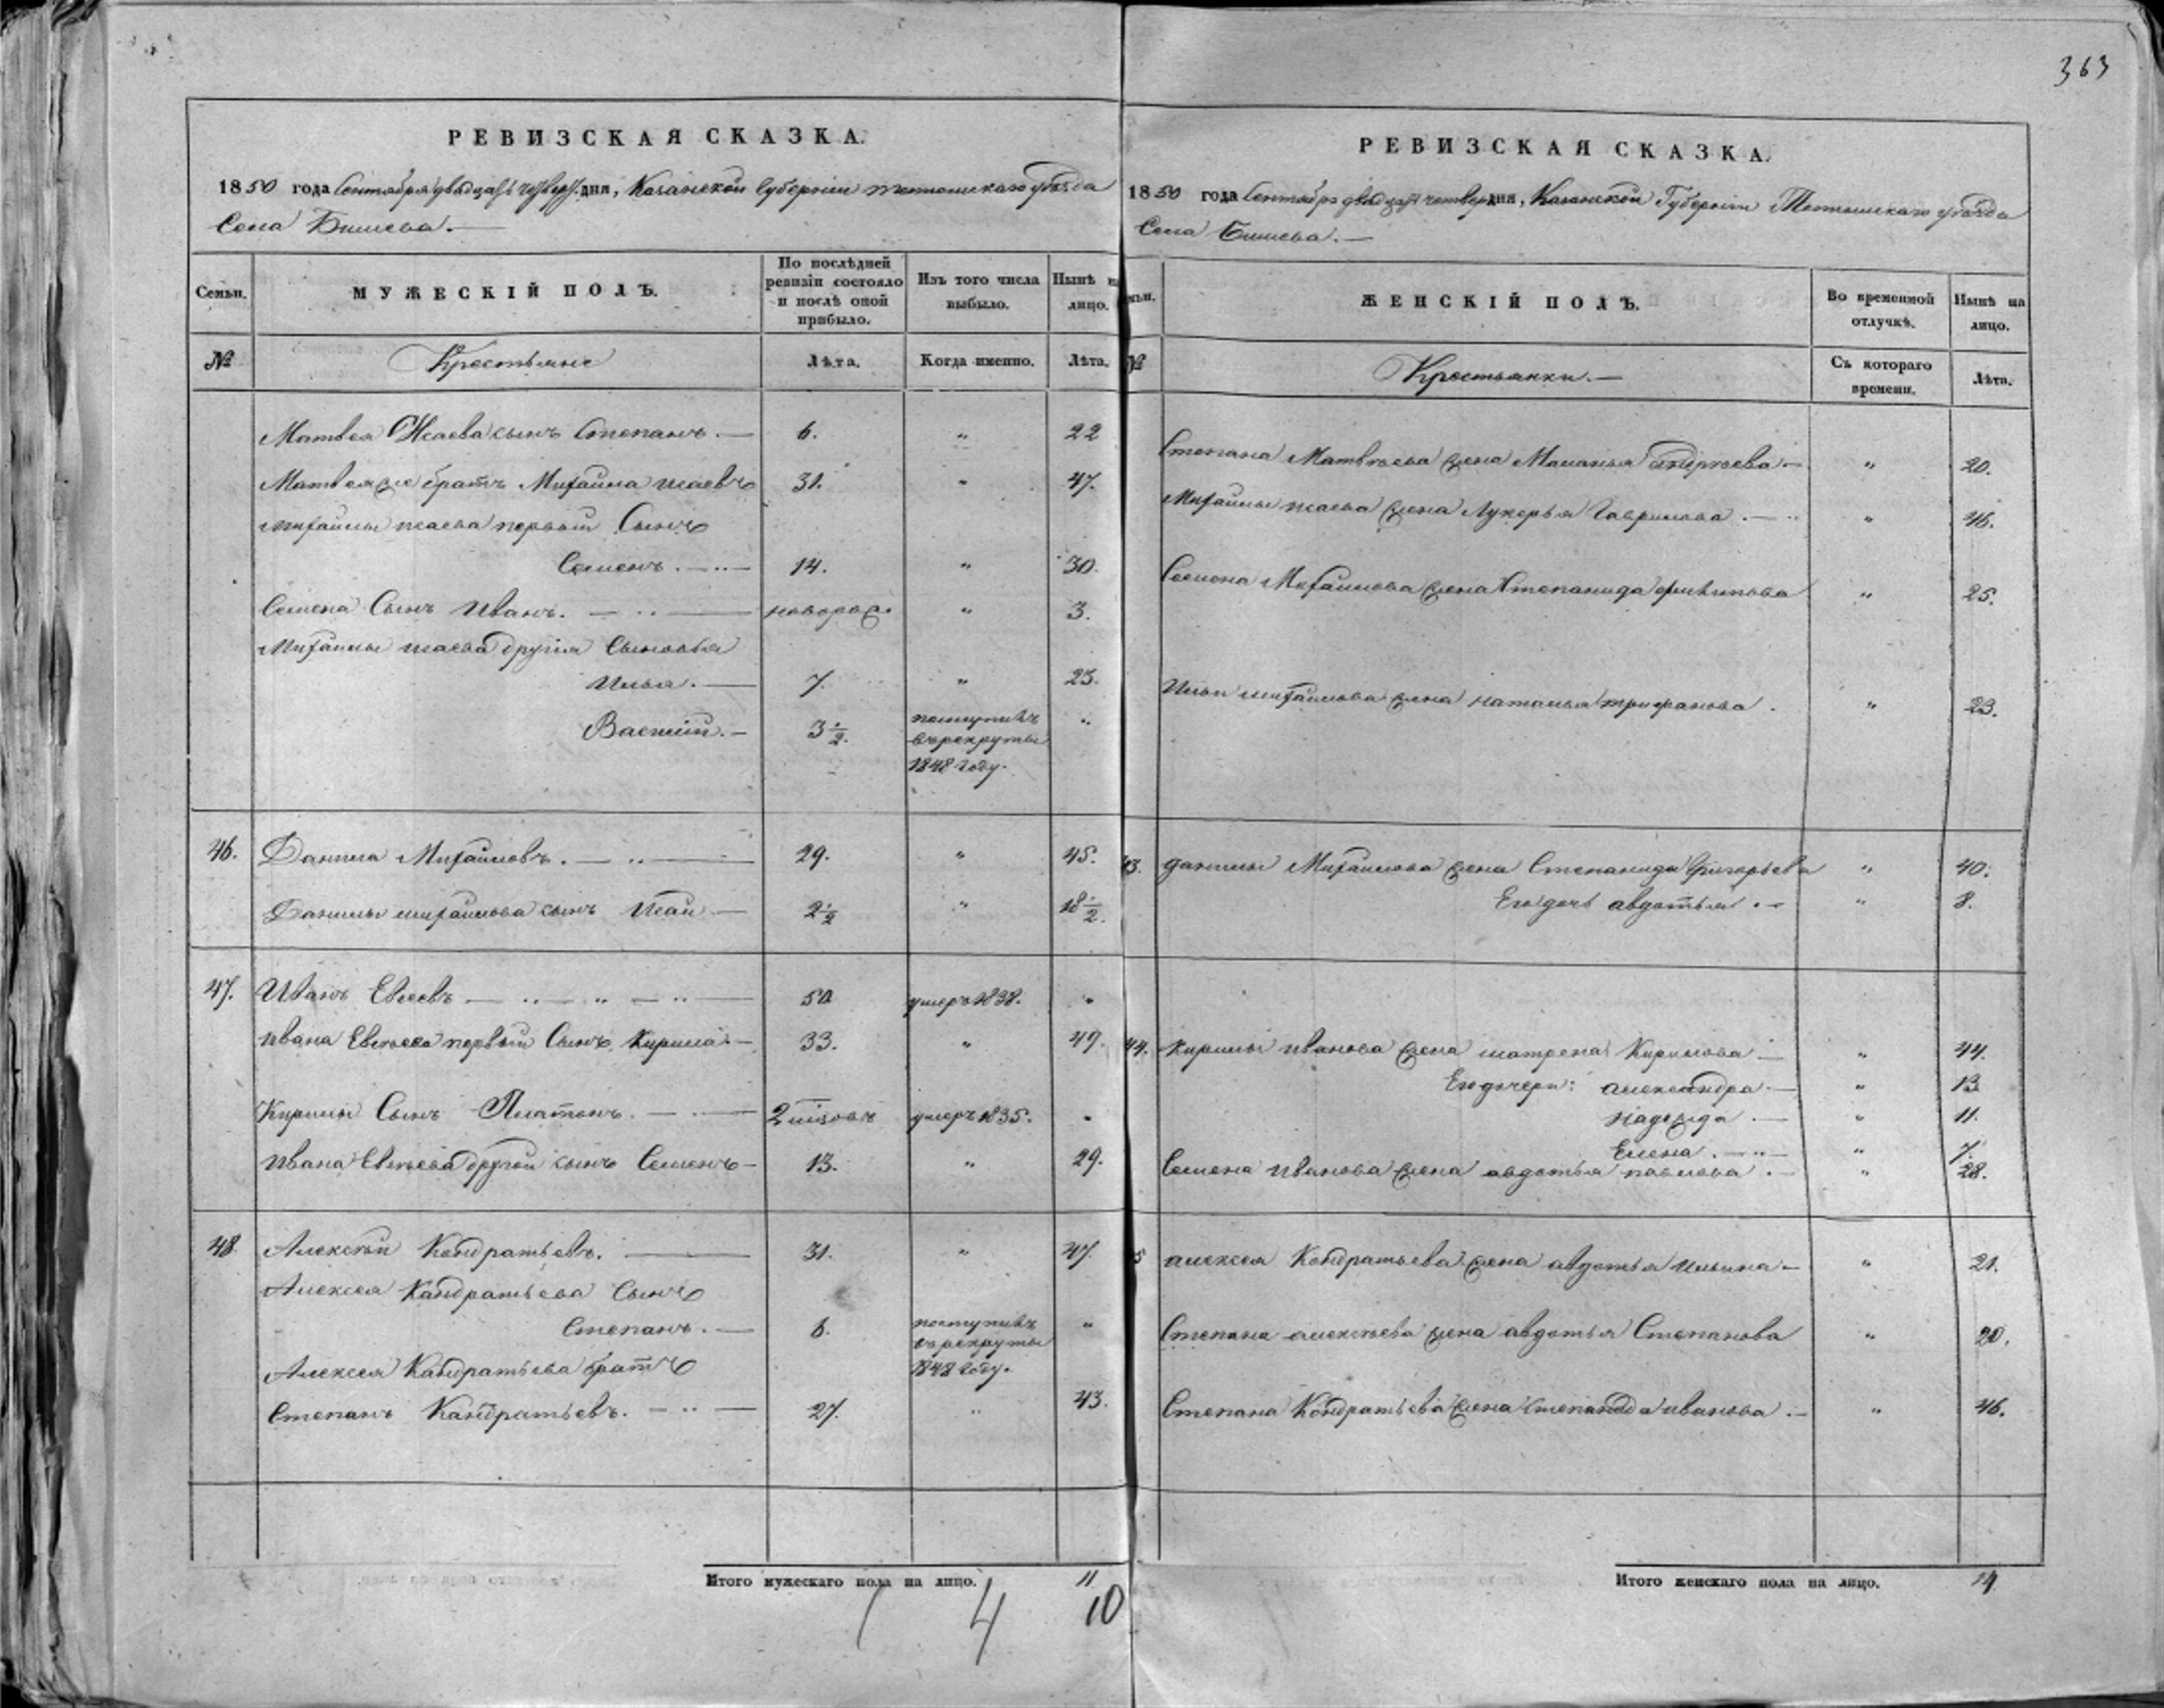 363
РЕВИЗСКАЯ СКАЗКА.
1850 года Сентября двадцать четверт. дня, Казанской Губернии Тетюшскаго уѣзда
Села Бишева.
Семьи.
МУЖЕСКІЙ ПОЛЪ.
По послѣдней ревизіи состояло и послѣ оной прибыло.
Изъ того числа выбыло.
Нынѣ на лицо.
№
Крестьяне
Лѣта.
Когда именно.
Лѣта.
Матвея Исаева сынъ Степанъ. 6. „ 22
Матвея же братъ Михайла Исаевъ 31. „ 47.
Михайлы Исаева первый Сынъ
Семенъ. 14. „ 30.
Семена Сынъ Иванъ. новорож. „ 3.
Михайлы Исаева другія Сыновья
Илья. 7. „ 23.
Василій. 3 1/2. поступилъ въ рекруты 1848 году. „
46. Данила Михайловъ. 29. „ 45.
Данилы Михайлова сынъ Исай 2 1/2 „ 18 1/2.
47. Иванъ Евсеевъ 50 умеръ 1838. „
Ивана Евсѣева первый Сынъ Кирила 33. „ 49.
Кирилы Сынъ Платонъ. 2 мѣсовъ умеръ 1835. „
Ивана Евсѣева другой сынъ Семенъ 13. „ 29.
48. Алексѣй Кондратьевъ. 31. „ 47.
Алексея Кандратьева Сынъ
Степанъ. 6. поступилъ въ рекруты 1848 году. „
Алексея Кандратьева братъ
Степанъ Кандратьевъ. 27. „ 43.
Итого мужескаго пола на лицо. 11
4 10
РЕВИЗСКАЯ СКАЗКА.
1850 года Сентября двадцать четверт дня, Казанской Губерніи Тетюшскаго уѣзда
Села Бишева.
ЖЕНСКІЙ ПОЛЪ.
Во временной отлучкѣ.
Нынѣ на лицо.
№
Крестьянки.
Съ котораго времени.
Лѣта.
Степана Матвѣева жена Маланья Андрѣева „ 20.
Михайлы Исаева жена Лукерья Гаврилова. „ 46.
Семена Михайлова жена Степанида Филипова „ 25.
Ильи Михайлова жена Наталья Трифанова. „ 23.
43. Данилы Михайлова жена Степанида Григорьева „ 40.
Его дочь авдотья. „ 8.
44. Кирилы Иванова жена Матрена Кирилова „ 44.
Его дочери: александра „ 13
Надежда „ 11.
Елена. „ 7.
Семена Иванова жена авдотья Павлова. „ 28.
5 алексея Кондратьева жена авдотья Ильина „ 21.
Степана алексѣева жена авдотья Степанова „ 20.
Степана Кондратьева жена Степанида Иванова. „ 46.
Итого женскаго пола на лицо. 14